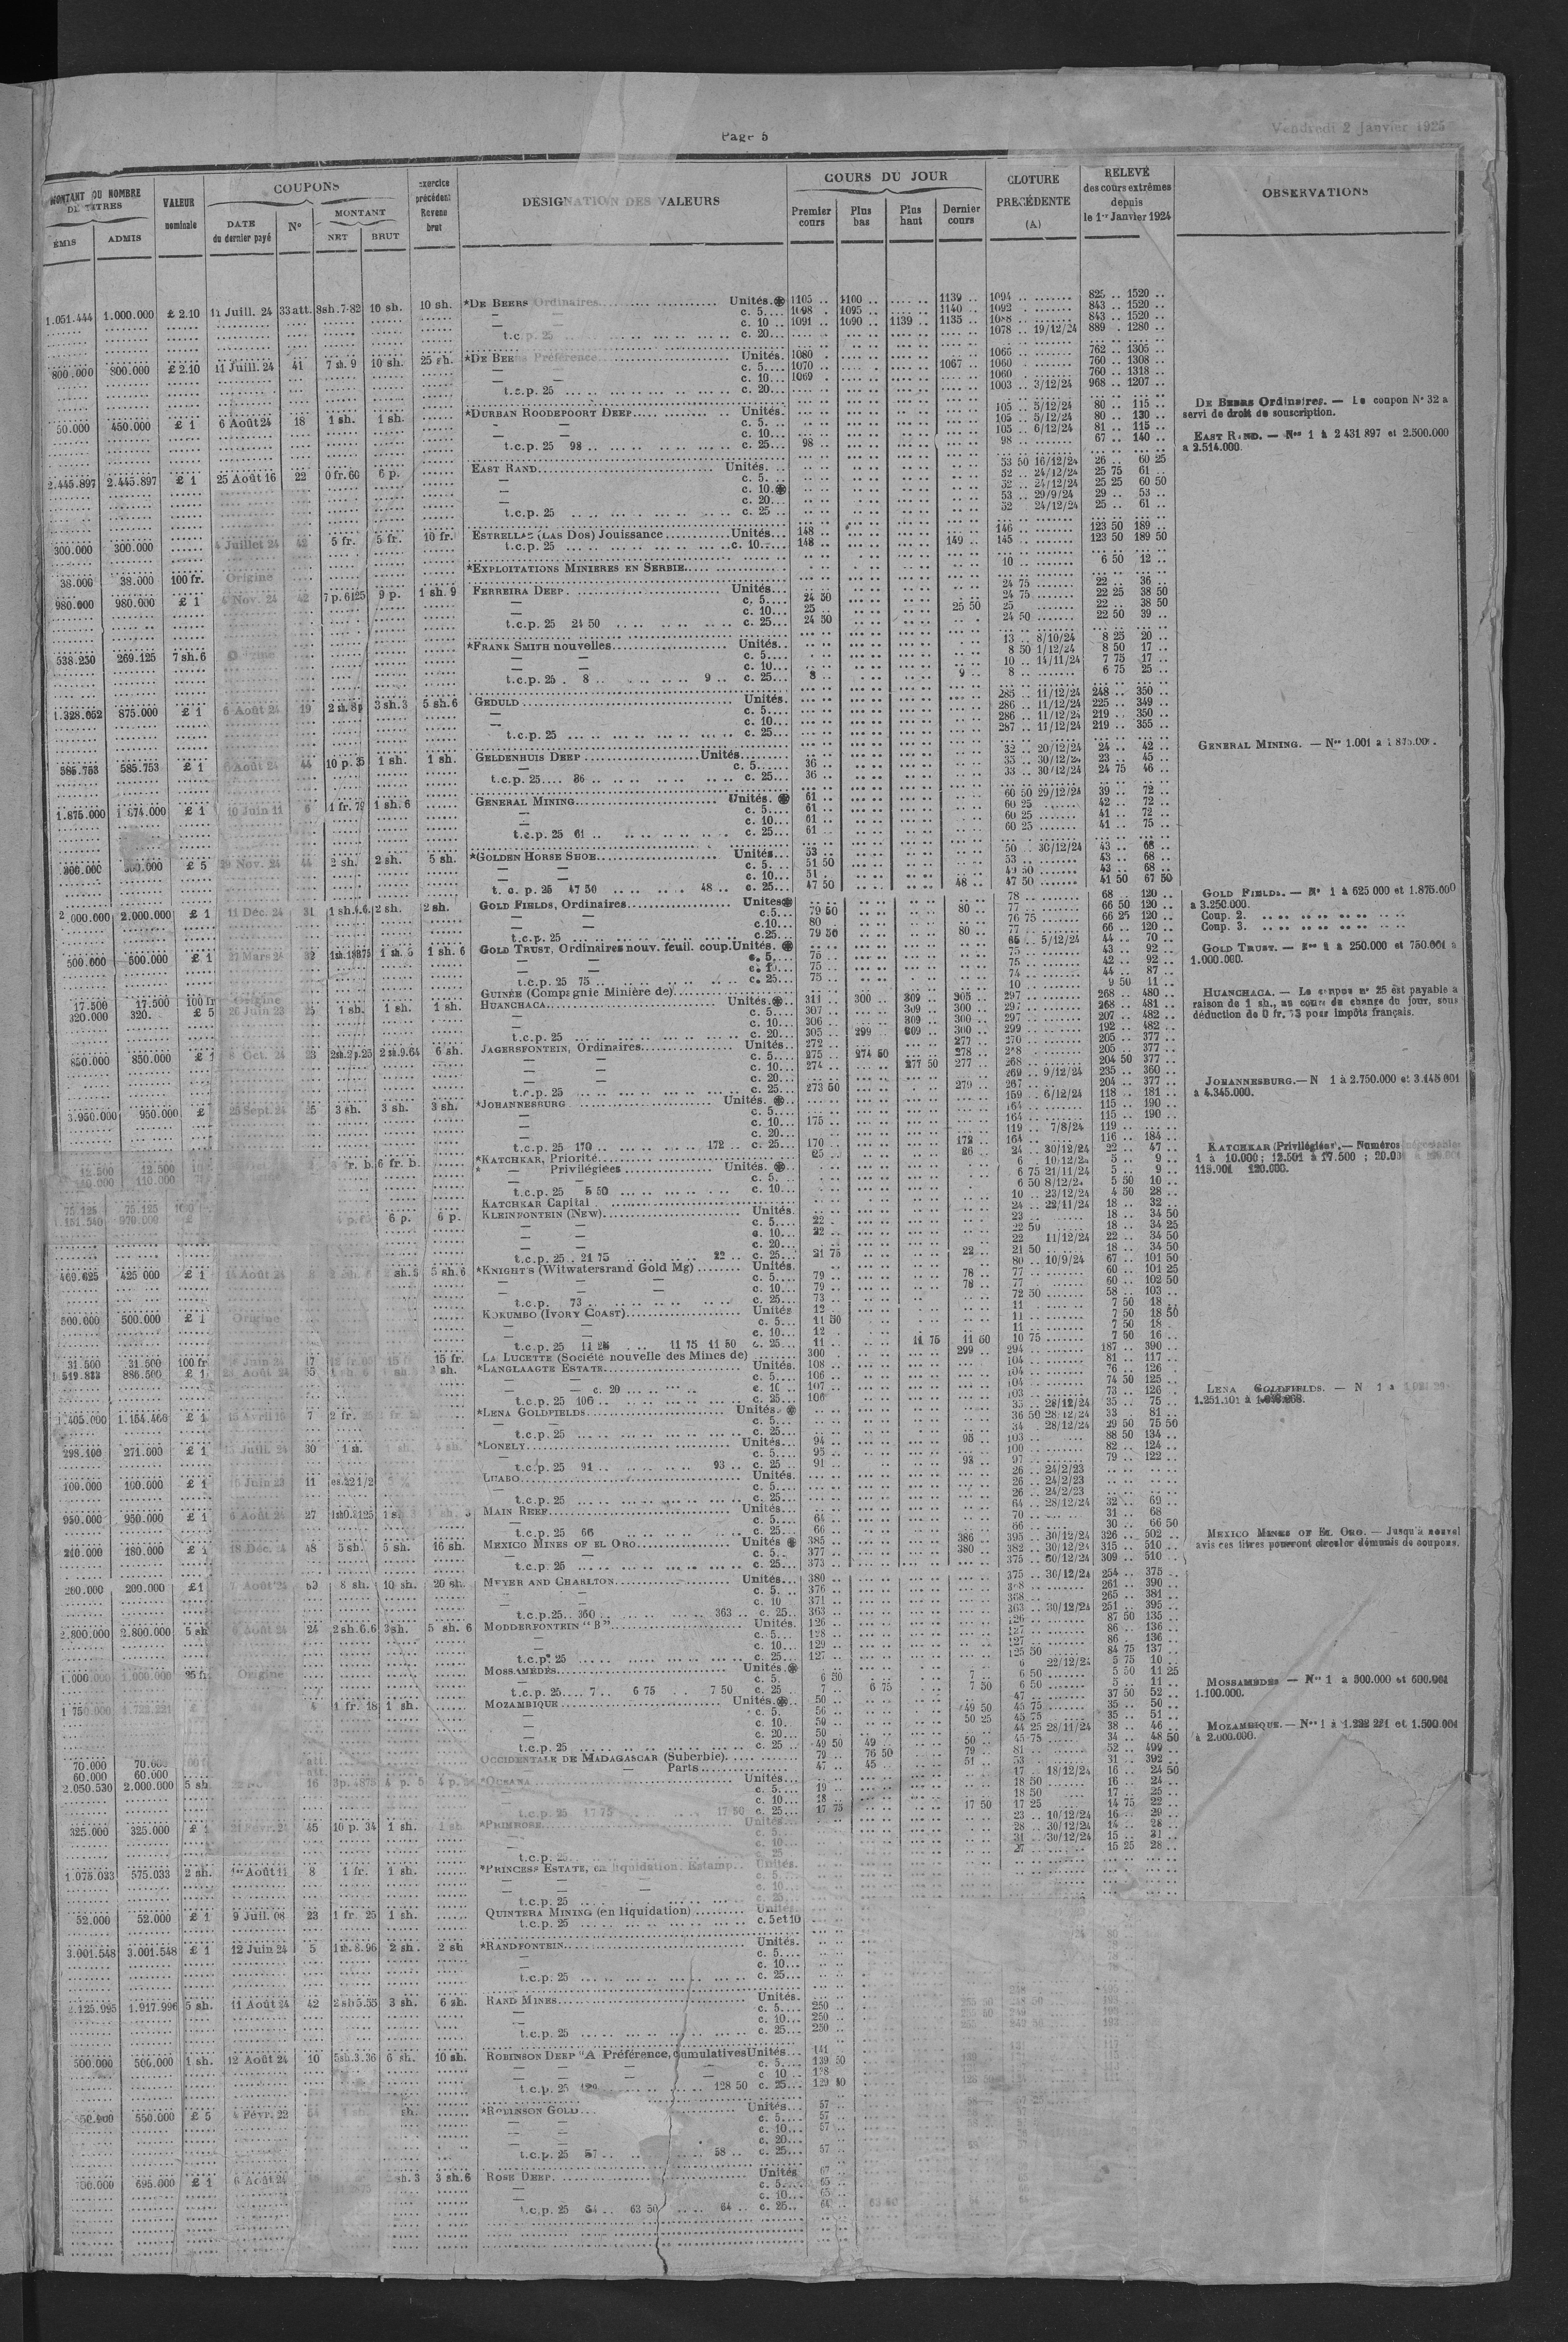 Page 5
Vendredi 2 Janvier 1925
MONTANT OU NOMBRE DE TITRES
ÉMIS ADMIS
VALEUR nominale
COUPONS
DATE du dernier payé
N°
MONTANT
NET BRUT
Exercice précédent Revenu brut
DÉSIGNATION DES VALEURS
COURS DU JOUR
Premier cours Plus bas Plus haut Dernier cours
CLOTURE PRÉCÉDENTE (A)
RELEVÉ des cours extrêmes depuis le 1er Janvier 1924
OBSERVATIONS
1.051.444 1.000.000 £ 2.10 11 Juill. 24 33 att. 8sh.7-82 10 sh. 10 sh. *DE BEERS Ordinaires Unités. 1105 .. 1100 .. 1139 .. 1094 .. 825 .. 1520 ..
— — c. 5 1098 .. 1095 .. 1140 .. 1092 .. 843 .. 1520 ..
— — c. 10 1091 .. 1090 .. 1139 .. 1135 .. 1088 .. 843 .. 1520 ..
t.c.p. 25 c. 20 1078 .. 19/12/24 889 .. 1280 ..
800.000 800.000 £ 2.10 11 Juill. 24 41 7 sh. 9 10 sh. 25 sh. *DE BEERS Préférence Unités. 1080 1066 .. 762 .. 1305 ..
— — c. 5 1070 .. 1067 .. 1060 .. 760 .. 1308 ..
— — c. 10 1069 .. 1060 .. 760 .. 1318 ..
t.c.p. 25 c. 20 1003 .. 3/12/24 968 .. 1207 ..
DE BEERS Ordinaires. — Le coupon N° 32 a servi de droit de souscription.
50.000 450.000 £ 1 6 Août 24 18 1 sh. 1 sh. *DURBAN ROODEPOORT DEEP Unités. 105 .. 5/12/24 80 .. 115 ..
c. 5 105 .. 5/12/24 80 .. 130 ..
c. 10 105 .. 6/12/24 81 .. 115 ..
t.c.p. 25 98 .. c. 25 98 .. 98 .. 67 .. 140 ..
EAST RAND. — Nos 1 à 2 431 897 et 2.500.000 a 2.514.000.
2.445.897 2.445.897 £ 1 25 Août 16 22 0 fr. 60 6 p. EAST RAND Unités. 53 50 16/12/24 26 .. 60 25
c. 5 52 .. 24/12/24 25 75 61 ..
c. 10 32 .. 24/12/24 25 25 60 50
c. 20 53 .. 29/9/24 29 .. 53 ..
t.c.p. 25 c. 25 52 24/12/24 25 .. 61 ..
300.000 300.000 4 Juillet 24 42 5 fr. 5 fr. 10 fr. ESTRELLAS (LAS DOS) Jouissance Unités 148 .. 146 .. 123 50 189 ..
t.c.p. 25 c. 10 148 .. 149 .. 145 .. 123 50 189 50
38.000 38.000 100 fr. Origine *EXPLOITATIONS MINIERES EN SERBIE 10 .. 6 50 12 ..
980.000 980.000 £ 1 4 Nov. 24 42 7 p. 6125 9 p. 1 sh. 9 FERREIRA DEEP Unités 24 75 22 .. 36 ..
c. 5 24 50 24 75 22 25 38 50
c. 10 25 .. 25 50 25 22 .. 38 50
t.c.p. 25 24 50 c. 25 24 50 24 50 22 50 39 ..
538.250 269.125 7 sh.6 Origine *FRANK SMITH nouvelles Unités 13 .. 8/10/24 8 25 20 ..
c. 5 8 50 1/12/24 8 50 17 ..
c. 10 10 .. 14/11/24 7 75 17 ..
t.c.p. 25 8 .. 9 .. c. 25 8 .. 9 .. 8 .. 6 75 25 ..
1.328.652 875.000 £ 1 6 Août 24 19 2 sh. 8p 3 sh.3 5 sh.6 GEDULD Unités. 285 .. 11/12/24 248 .. 350 ..
c. 5 286 .. 11/12/24 225 .. 349 ..
c. 10 286 .. 11/12/24 219 .. 350 ..
t.c.p. 25 c. 25 287 .. 11/12/24 219 .. 355 ..
585.753 585.753 £ 1 6 Août 24 44 10 p. 35 1 sh. 1 sh. GELDENHUIS DEEP Unités 32 .. 20/12/24 24 .. 42 ..
c. 5 36 .. 35 .. 30/12/24 23 .. 45 ..
t.c.p. 25 36 .. c. 25 36 .. 33 .. 30/12/24 24 75 46 ..
GENERAL MINING. — Nos 1.001 a 1 875.000.
1.875.000 1 874.000 £ 1 10 Juin 11 6 1 fr. 79 1 sh. 6 GENERAL MINING Unités. 61 .. 60 50 29/12/24 39 .. 72 ..
c. 5 61 .. 60 25 42 .. 72 ..
c. 10 61 .. 60 25 41 .. 72 ..
t.c.p. 25 61 .. c. 25 61 .. 60 25 41 .. 75 ..
300.000 300.000 £ 5 29 Nov. 24 44 2 sh. 2 sh. 5 sh. *GOLDEN HORSE SHOE Unités 53 .. 50 .. 30/12/24 43 .. 68 ..
c. 5 51 50 53 .. 43 .. 68 ..
c. 10 51 .. 49 50 43 .. 68 ..
t. c. p. 25 47 50 48 .. c. 25 47 50 48 .. 47 50 41 50 67 50
2 000.000 2.000.000 £ 1 11 Déc. 24 31 1 sh.6.6. 2 sh. 2 sh. GOLD FIELDS, Ordinaires Unités 78 .. 68 120 ..
c. 5 79 50 80 .. 77 .. 66 50 120 ..
c. 10 80 76 75 66 25 120 ..
t.c.p. 25 c. 25 79 50 80 .. 77 .. 66 .. 120 ..
GOLD FIELDS. — N° 1 à 625 000 et 1.875.000 a 3.250.000.
Coup. 2.
Coup. 3.
500.000 500.000 £ 1 27 Mars 24 32 1sh.18875 1 sh. 5 1 sh. 6 GOLD TRUST, Ordinaires nouv. feuil. coup. Unités. 65 .. 5/12/24 44 .. 70 ..
c. 5 75 .. 75 .. 43 .. 92 ..
c. 10 75 .. 75 .. 42 .. 92 ..
t.c.p. 25 75 .. c. 25 75 .. 74 .. 44 .. 87 ..
GOLD TRUST. — Nos 1 à 250.000 et 750.001 à 1.000.000.
17.500 17.500 100 fr Origine GUINÉE (Compagnie Minière de) 10 9 50 11 ..
320.000 320. £ 5 26 Juin 23 25 1 sh. 1 sh. 1 sh. HUANCHACA Unités. 311 .. 300 .. 309 .. 305 .. 297 .. 268 .. 480 ..
c. 5 307 .. 309 .. 300 .. 297 .. 268 .. 481 ..
c. 10 306 .. 309 .. 300 .. 297 .. 207 .. 482 ..
t.c.p. 25 c. 20 305 .. 299 309 .. 300 .. 299 .. 192 .. 482 ..
HUANCHACA. — Le coupon n° 25 est payable a raison de 1 sh., au cours du change du jour, sous déduction de 0 fr. 73 pour impôts français.
850.000 850.000 £ 1 8 Oct. 24 23 2sh.2p.25 2 sh.9.64 6 sh. JAGERSFONTEIN, Ordinaires Unités 272 .. 277 .. 270 .. 205 .. 377 ..
c. 5 275 .. 274 50 278 .. 268 .. 205 .. 377 ..
c. 10 274 .. 277 50 277 .. 268 .. 204 50 377 ..
c. 20 269 .. 9/12/24 235 .. 360 ..
t.c.p. 25 c. 25 273 50 279 .. 267 .. 204 .. 377 ..
JOHANNESBURG.— N 1 à 2.750.000 et 3.145 001 a 4.345.000.
3.950.000 950.000 £ 25 Sept. 24 25 3 sh. 3 sh. 3 sh. *JOHANNESBURG Unités. 159 .. 6/12/24 118 .. 181 ..
c. 5 164 .. 115 .. 190 ..
c. 10 175 .. 164 .. 115 .. 190 ..
c. 20 119 .. 7/8/24 119 ..
t.c.p. 25 170 .. 172 .. c. 25 170 .. 172 .. 164 .. 116 .. 184 ..
12.500 12.500 fr. b. 6 fr. b. *KATCHKAR, Priorité 25 .. 26 .. 24 .. 30/12/24 22 .. 47 ..
110.000 110.000 * — Privilégiées Unités. 6 .. 10/12/24 5 .. 9 ..
c. 5 6 75 21/11/24 5 .. 9 ..
t.c.p. 25 5 50 c. 10 6 50 8/12/24 5 50 10 ..
KATCHKAR (Privilégiées). — Numéros 1 à 10.000 ; 12.501 à 17.500 ;
75 125 75.125 KATCHKAR Capital 10 .. 23/12/24 4 50 28 ..
1.151.540 970.000 £ 6 p. 6 p. KLEINFONTEIN (NEW) Unités. 24 .. 22/11/24 18 .. 32 ..
c. 5 22 .. 23 .. 18 .. 34 50
c. 10 22 .. 22 50 18 .. 34 25
c. 20 22 11/12/24 22 .. 34 50
t.c.p. 25 21 75 22 .. c. 25 21 75 22 .. 21 50 18 .. 34 50
469.625 425 000 £ 1 14 Août 24 5 sh.6 *KNIGHT'S (Witwatersrand Gold Mg) Unités. 80 .. 10/9/24 67 .. 101 50
c. 5 79 .. 78 .. 77 .. 60 .. 101 25
c. 10 79 .. 78 .. 77 .. 60 .. 102 50
t.c.p. 73 .. c. 25 73 .. 72 50 58 .. 103 ..
500.000 500.000 £ 1 Origine KOKUMBO (IVORY COAST) Unités 12 .. 11 .. 7 50 18 ..
c. 5 11 50 11 .. 7 50 18 50
c. 10 12 .. 11 .. 7 50 18 ..
t.c.p. 25 11 25 11 75 11 50 c. 25 11 .. 11 75 11 50 10 75 7 50 16 ..
31.500 31.500 100 fr 17 15 fr. LA LUCETTE (Société nouvelle des Mines de) 300 299 .. 294 .. 187 .. 390 ..
1 519.833 886.500 £ 1 *LANGLAAGTE ESTATE Unités. 108 .. 104 .. 81 .. 117 ..
c. 5 106 .. 104 .. 76 .. 126 ..
c. 20 c. 10 107 .. 104 .. 74 50 125 ..
t.c.p. 25 106 .. c. 25 106 103 .. 73 .. 126 ..
LENA GOLDFIELDS. — N 1 à
1.405.000 1.154.466 £ 1 15 Avril 16 7 2 fr. *LENA GOLDFIELDS Unités. 35 .. 28/12/24 35 .. 75 ..
c. 5 36 50 28/12/24 33 .. 81 ..
t.c.p. 25 c. 25 34 28/12/24 29 50 75 50
298.100 271.000 £ 1 Juill. 24 30 *LONELY Unités 94 .. 95 .. 103 .. 88 50 134 ..
c. 5 95 .. 100 .. 82 .. 124 ..
t.c.p. 25 91 .. 93 .. c. 25 91 .. 93 .. 97 .. 79 .. 122 ..
100.000 100.000 £ 1 Juin 23 11 es.32 1/2 LUABO Unités. 26 .. 24/2/23
c. 5 26 .. 24/2/23
t.c.p. 25 c. 25 26 .. 24/2/23
950.000 950.000 £ 1 6 Août 24 27 MAIN REEF Unités 64 .. 28/12/24 32 .. 69 ..
c. 5 64 .. 70 .. 31 .. 68
t.c.p. 25 66 c. 25 66 .. 66 .. 30 .. 66 50
210.000 180.000 £ 1 18 Déc. 24 48 5 sh. 5 sh. 16 sh. MEXICO MINES OF EL ORO Unités 385 .. 386 395 .. 30/12/24 326 .. 502 ..
c. 5 377 .. 380 .. 382 .. 30/12/24 315 .. 510 ..
t.c.p. 25 c. 25 373 .. 375 .. 30/12/24 309 .. 510 ..
MEXICO MINES OF EL ORO. — Jusqu'à nouvel avis ces titres pourront circuler démunis de coupons.
200.000 200.000 £1 7 Août 24 60 8 sh. 10 sh. 20 sh. MEYER AND CHARLTON Unités 380 .. 375 .. 30/12/24 254 .. 375 ..
c. 5 376 .. 368 .. 261 .. 390 ..
c. 10 371 .. 368 .. 265 .. 381 ..
t.c.p.25 360 .. 363 .. c. 25 363 .. 363 .. 30/12/24 251 .. 395 ..
2.800.000 2.800.000 5 sh 6 Août 24 24 2 sh.6.6 3 sh. 5 sh. 6 MODDERFONTEIN "B" Unités. 126 .. 126 .. 87 50 135 ..
c. 5 128 .. 127 .. 86 .. 136 ..
c. 10 129 .. 127 .. 86 .. 136 ..
t.c.p. 25 c. 25 127 .. 125 50 84 75 137 ..
1.000.000 1.000.000 25 fr. Origine MOSSAMÉDÈS Unités. 6 22/12/24 5 75 10 ..
c. 5 6 50 7 .. 6 50 5 50 11 25
t.c.p. 25 7 .. 6 75 7 50 c. 25 7 .. 6 75 7 50 6 50 5 .. 11 ..
MOSSAMEDES — Nos 1 à 500.000 et 600.001 1.100.000.
1 750.000 1.722.221 1 fr. 18 1 sh. MOZAMBIQUE Unités. 50 .. 47 .. 37 50 52 ..
c. 5 50 .. 49 50 45 75 35 .. 50 ..
c. 10 50 .. 50 25 45 75 35 .. 51 ..
c. 20 50 44 25 28/11/24 38 .. 46 ..
t.c.p. 25 c. 25 49 50 49 .. 50 .. 45 75 34 .. 48 50
MOZAMBIQUE. — Nos 1 à 1.222 221 et 1.500.001 à 2.000.000.
70.000 70.000 OCCIDENTALE DE MADAGASCAR (Suberbie) 79 .. 76 50 79 .. 81 .. 52 .. 499 ..
60.000 60.000 — Parts 47 .. 45 51 .. 53 .. 31 .. 392 ..
2.050.530 2.000.000 5 sh 16 3 p. 4875 4 p. 5 *OCEANA Unités 17 .. 18/12/24 16 .. 24 50
c. 5 19 .. 18 50 16 .. 24 ..
c. 10 18 .. 18 50 17 .. 25 ..
t.c.p. 25 17 75 17 50 c. 25 17 75 17 50 17 25 14 75 22 ..
325.000 325.000 £ 1 21 Févr. 24 45 10 p. 34 1 sh. 1 sh. *PRIMROSE Unités 23 .. 10/12/24 16 .. 29 ..
c. 5 28 .. 30/12/24 14 .. 28 ..
c. 10 31 .. 30/12/24 15 .. 31 ..
t.c.p. 25 c. 25 27 15 25 28 ..
1.075.033 575.033 2 sh. 1er Août 11 8 1 fr. 1 sh. *PRINCESS ESTATE, en liquidation. Estamp. Unités.
c. 5
c. 10
t.c.p. 25 c. 25
52.000 52.000 £ 1 9 Juil. 08 23 1 fr. 25 1 sh. QUINTERA MINING (en liquidation) Unités
t.c.p. 25 c. 5 et 10
3.001.548 3.001.548 £ 1 12 Juin 24 5 1 sh. 8.96 2 sh. 2 sh *RANDFONTEIN Unités.
c. 5
c. 10
t.c.p. 25 c. 25
2.125.995 1.917.996 5 sh. 11 Août 24 42 2 sh 5.55 3 sh. 6 sh. RAND MINES Unités.
c. 5 250 ..
c. 10 250 ..
t.c.p. 25 c. 25 250 ..
500.000 500.000 1 sh. 12 Août 24 10 5sh.3.36 6 sh. 10 sh. ROBINSON DEEP "A Préférence, cumulatives Unités 141
c. 5 139 50
c 10 138
t.c.p. 25 129 128 50 c. 25 129 50
550.000 550.000 £ 5 4 Févr. 22 *ROBINSON GOLD Unités 57 ..
c. 5 57 ..
c. 10 57 ..
c. 20
t.c.p. 25 57 .. 58 .. c. 25 57 ..
700.000 695.000 £ 1 6 Août 24 sh. 3 3 sh.6 ROSE DEEP Unités 67 ..
c. 5 65 ..
c. 10 65 ..
t.c.p. 25 64 .. 63 50 64 .. c. 25 64 .. 63 50